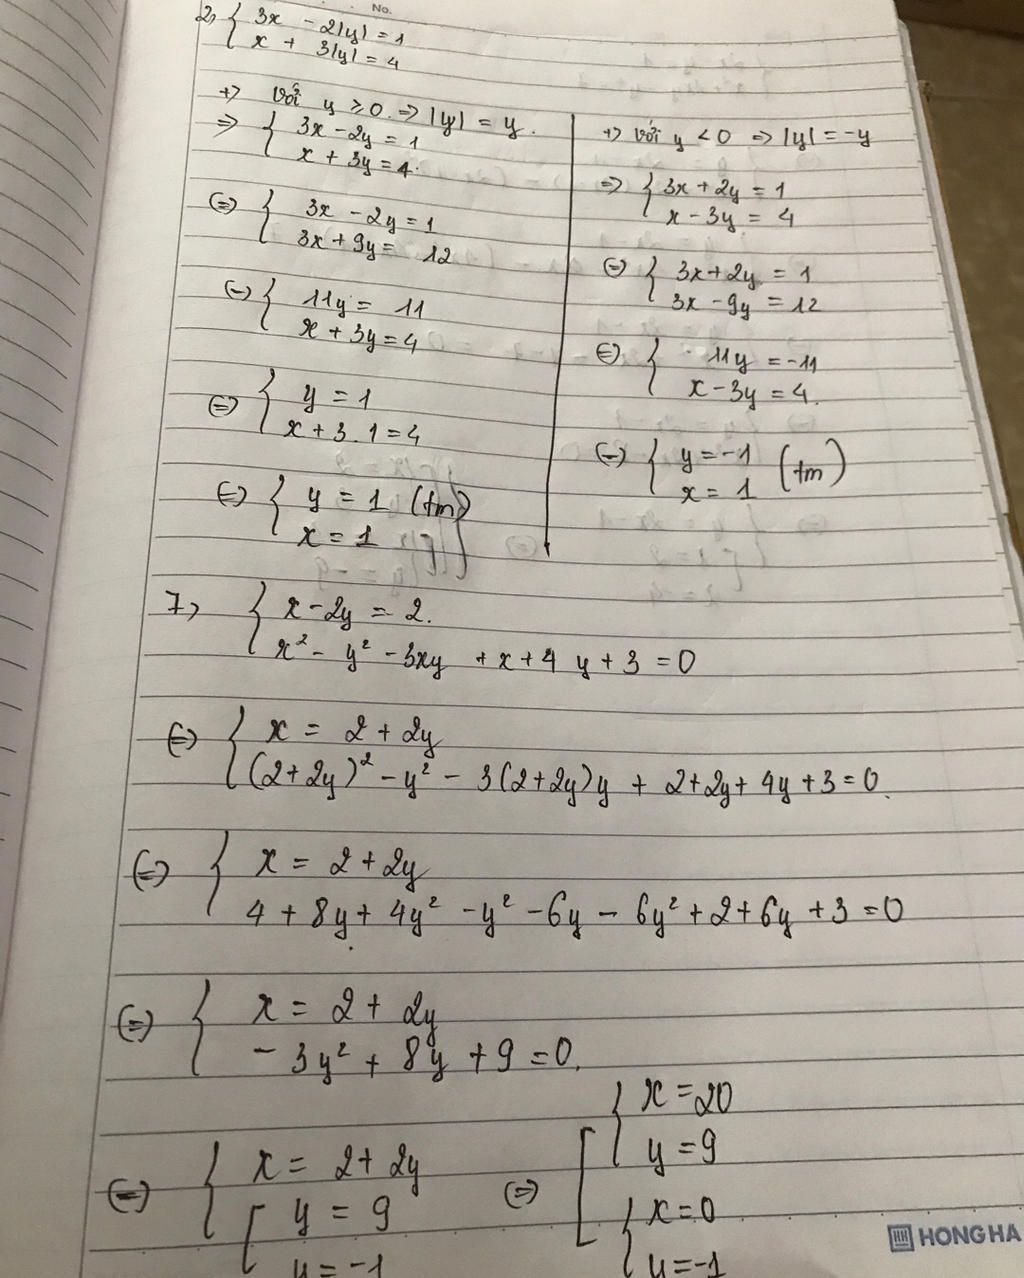 No.
2, { 3x - 2|y| = 1
x + 3|y| = 4
+) với y ≥ 0 => |y| = y.
=> { 3x - 2y = 1
x + 3y = 4.
(=) { 3x - 2y = 1
3x + 9y = 12
(=) { 11y = 11
x + 3y = 4
(=) { y = 1
x + 3.1 = 4
(=) { y = 1 (tm)
x = 1
+) với y < 0 => |y| = -y
=> { 3x + 2y = 1
x - 3y = 4
(=) { 3x + 2y = 1
3x - 9y = 12
(=) { 11y = -11
x - 3y = 4.
(=) { y = -1 (tm)
x = 1
7, { x - 2y = 2.
x² - y² - 3xy + x + 4y + 3 = 0
(=) { x = 2 + 2y
(2+2y)² - y² - 3(2+2y)y + 2+2y + 4y + 3 = 0.
(=) { x = 2 + 2y
4 + 8y + 4y² - y² - 6y - 6y² + 2 + 6y + 3 = 0
(=) { x = 2 + 2y
- 3y² + 8y + 9 = 0.
(=) { x = 2 + 2y
[ y = 9
y = -1
(=) [ { x = 20
y = 9
{ x = 0
y = -1
HONG HA